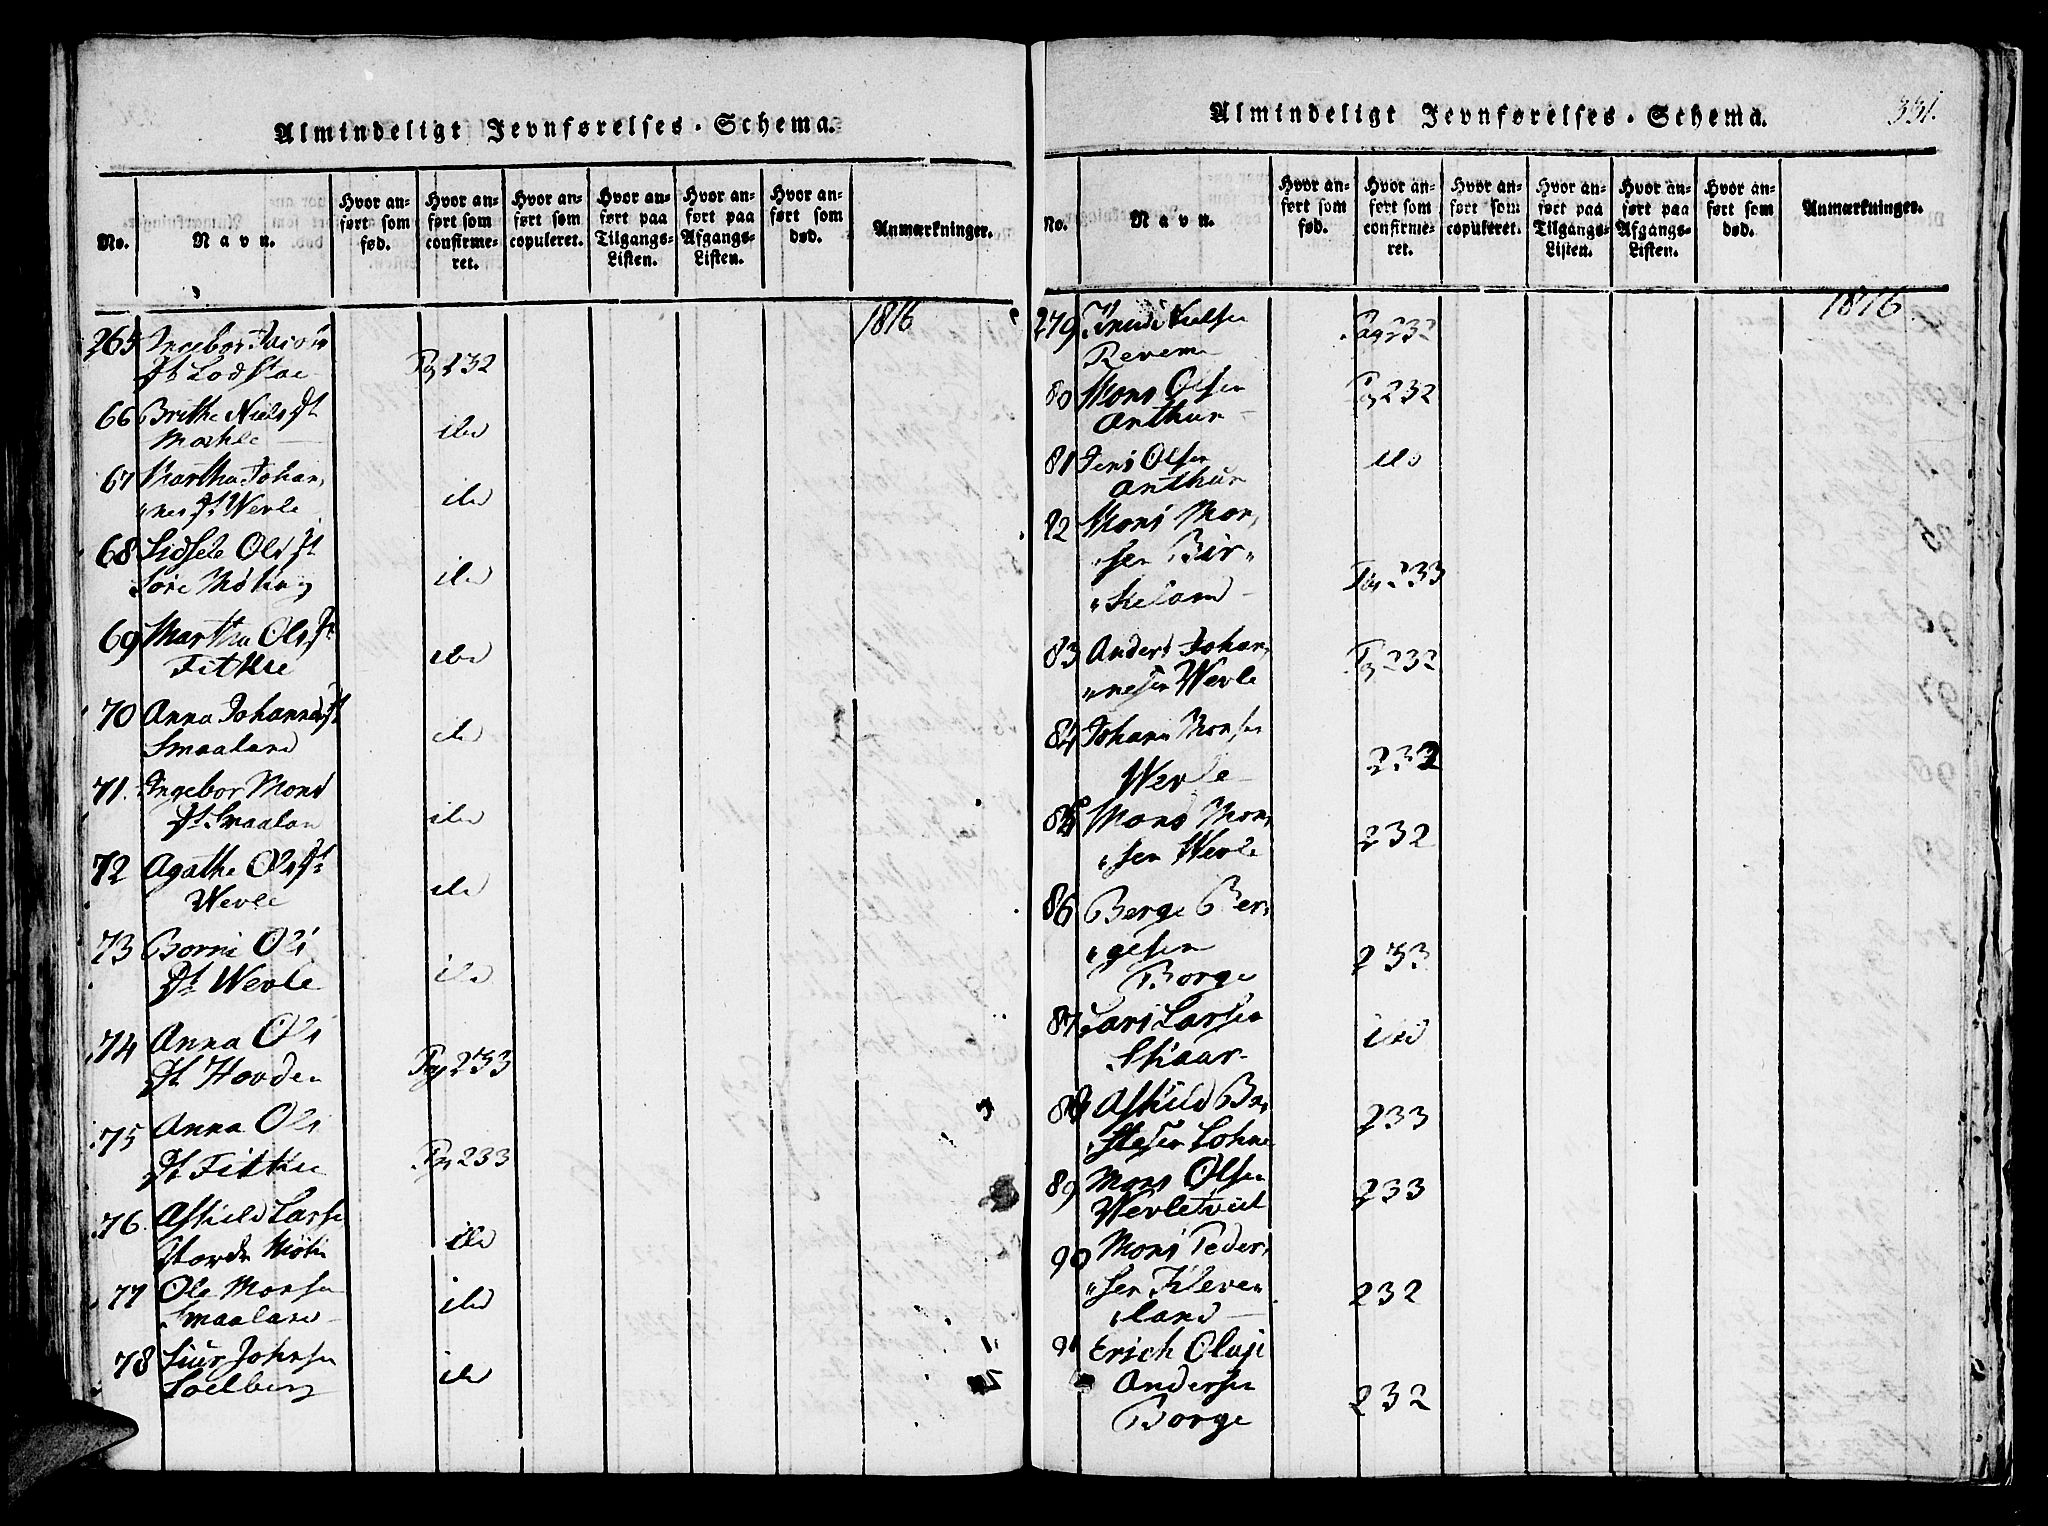 Almindeligt Jevnførelses-Schema.
No. Navn. Hvor anført som fød. Hvor anført som confirmeret. Hvor anført som copuleret. Hvor anført paa Tilgangs-Listen. Hvor anført paa Afgangs-Listen. Hvor anført som død. Anmærkninger.
1816
265 Ingebor
Dt Pag 232
66 Brithe Niels Dt
ibd
67 Martha Johan,
"nes Dt Wevle ibd
68 Sidsele Ols Dt
ibd
69 Martha Ols Dt
Fitkie ibd
70 Anna Johannes Dt
Smaaland ibd
71 Ingebor Mons
Dt Smaalan ibd
72 Agathe Ols Dt
Wevle ibd
73 Borni Ols
Dt Wevle ibd
74 Anna Ols
Dt Hovden Pag 233
75 Anna Ols
Dt Fitkie Pag 233
76 Askield Larse
ibd
77 Ole Monsen
Smaaland ibd
78 Siur Johnsen
Solberg ibd
Almindeligt Jevnførelses-Schema. 331.
No. Navn. Hvor anført som fød. Hvor anført som confirmeret. Hvor anført som copuleret. Hvor anført paa Tilgangs-Listen. Hvor anført paa Afgangs-Listen. Hvor anført som død. Anmærkninger.
1816
279 Knud Nielsen
Pag 232
80 Mons Olsen
Arthur Pag 232
81 Jens Olsen
Arthur ibd
82 Mons Mon,
"sen Bir"
"keland Pag 233
83 Anders Johan,
"nesen Wevle Pag 232
84 Johan Monsen
Wevle 232
85 Mons Mon,
"sen Wevle 232
86 Berge Ber,
"gesen
Borge 233
87 Lars Larsen
Skaar ibd
88 Askield Ba,
233
89 Mons Olsen
Wevletveit 233
90 Mons Peder,
"sen Kleven
"land 232
91 Erich Oluf
Andersen
Borge 232